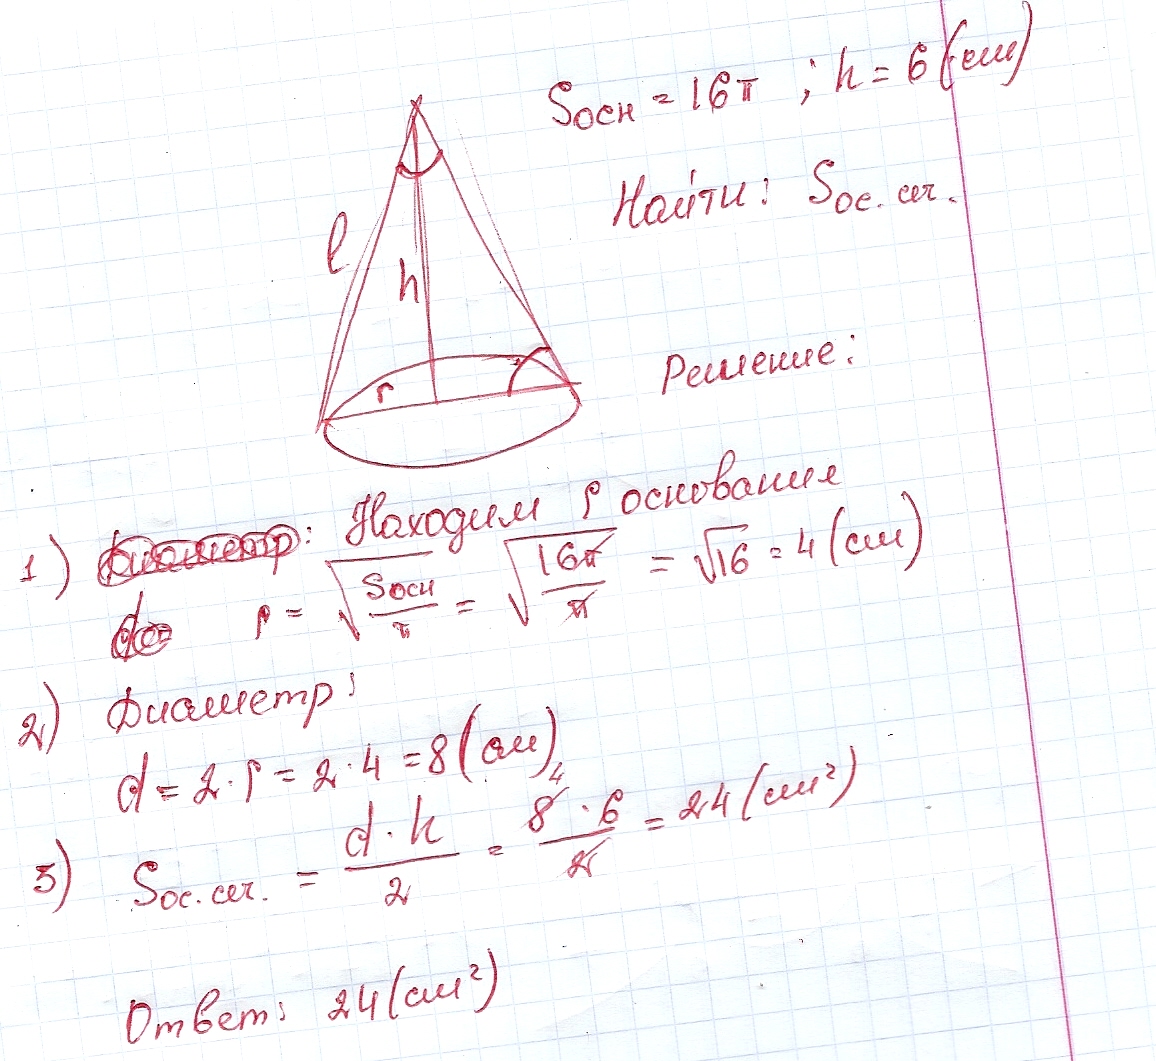 Sосн = 16π ; h = 6 (см)
Найти: Sос. сеч.
l
h
r
Решение:
1) : Находим r основания
r = √(Sосн/π) = √(16π/π) = √16 = 4 (см)
2) Диаметр:
d = 2 · r = 2 · 4 = 8 (см)
3) Sос. сеч. = (d · h)/2 = (8 · 6)/2 = 24 (см²)
4
Ответ: 24 (см²)